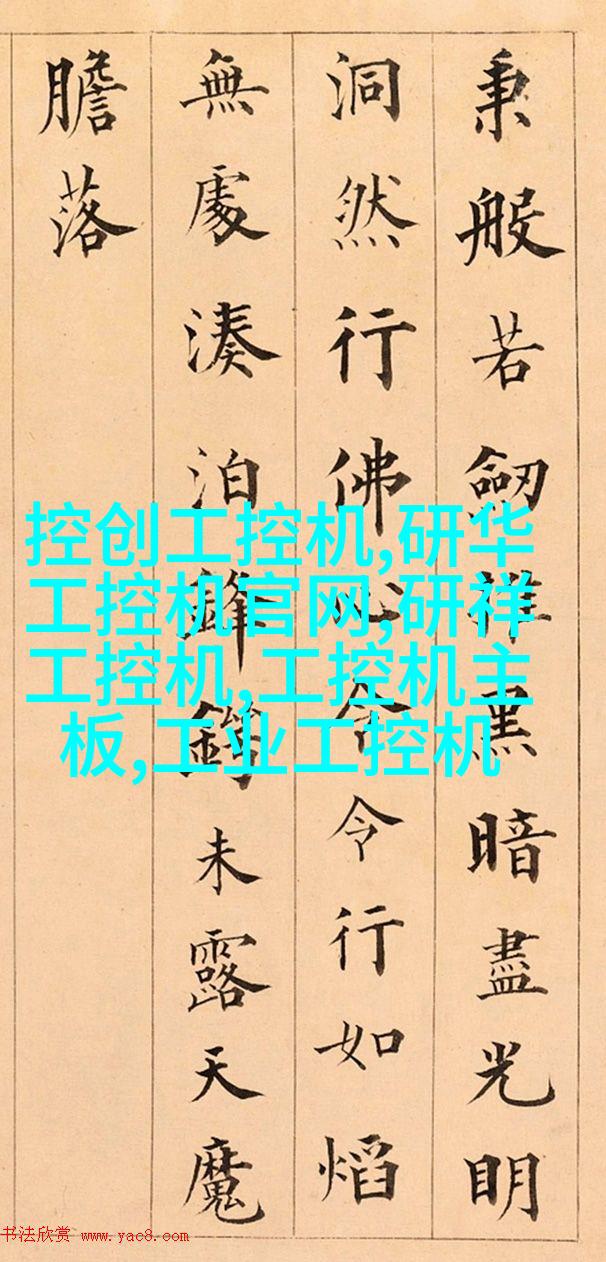 秉般若劒黑暗盡光明
洞然行佛心令行如熖
無處湊泊鋒鋩未露天魔
膽落
控创工控机,研华
工控机官网,研祥
工控机,工控机主
板,工业工控机
书法欣赏 www.yac8.com